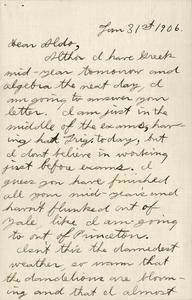 Jan 31st 1906.
Dear Aldo,
Altho I have Greek
mid-year tomorrow and
algebra the next day, I
am going to answer your
letter. I am just in the
middle of the exams, hav-
ing had Trig. today, but
I don't believe in working
just before exams. I
guess you have finished
all your mid-years and
havn't flunked out of
Yale like I am going
to out of Princeton.
Isn't this the damedest
weather so warm that
the dandelions are bloom-
ing and that I almost